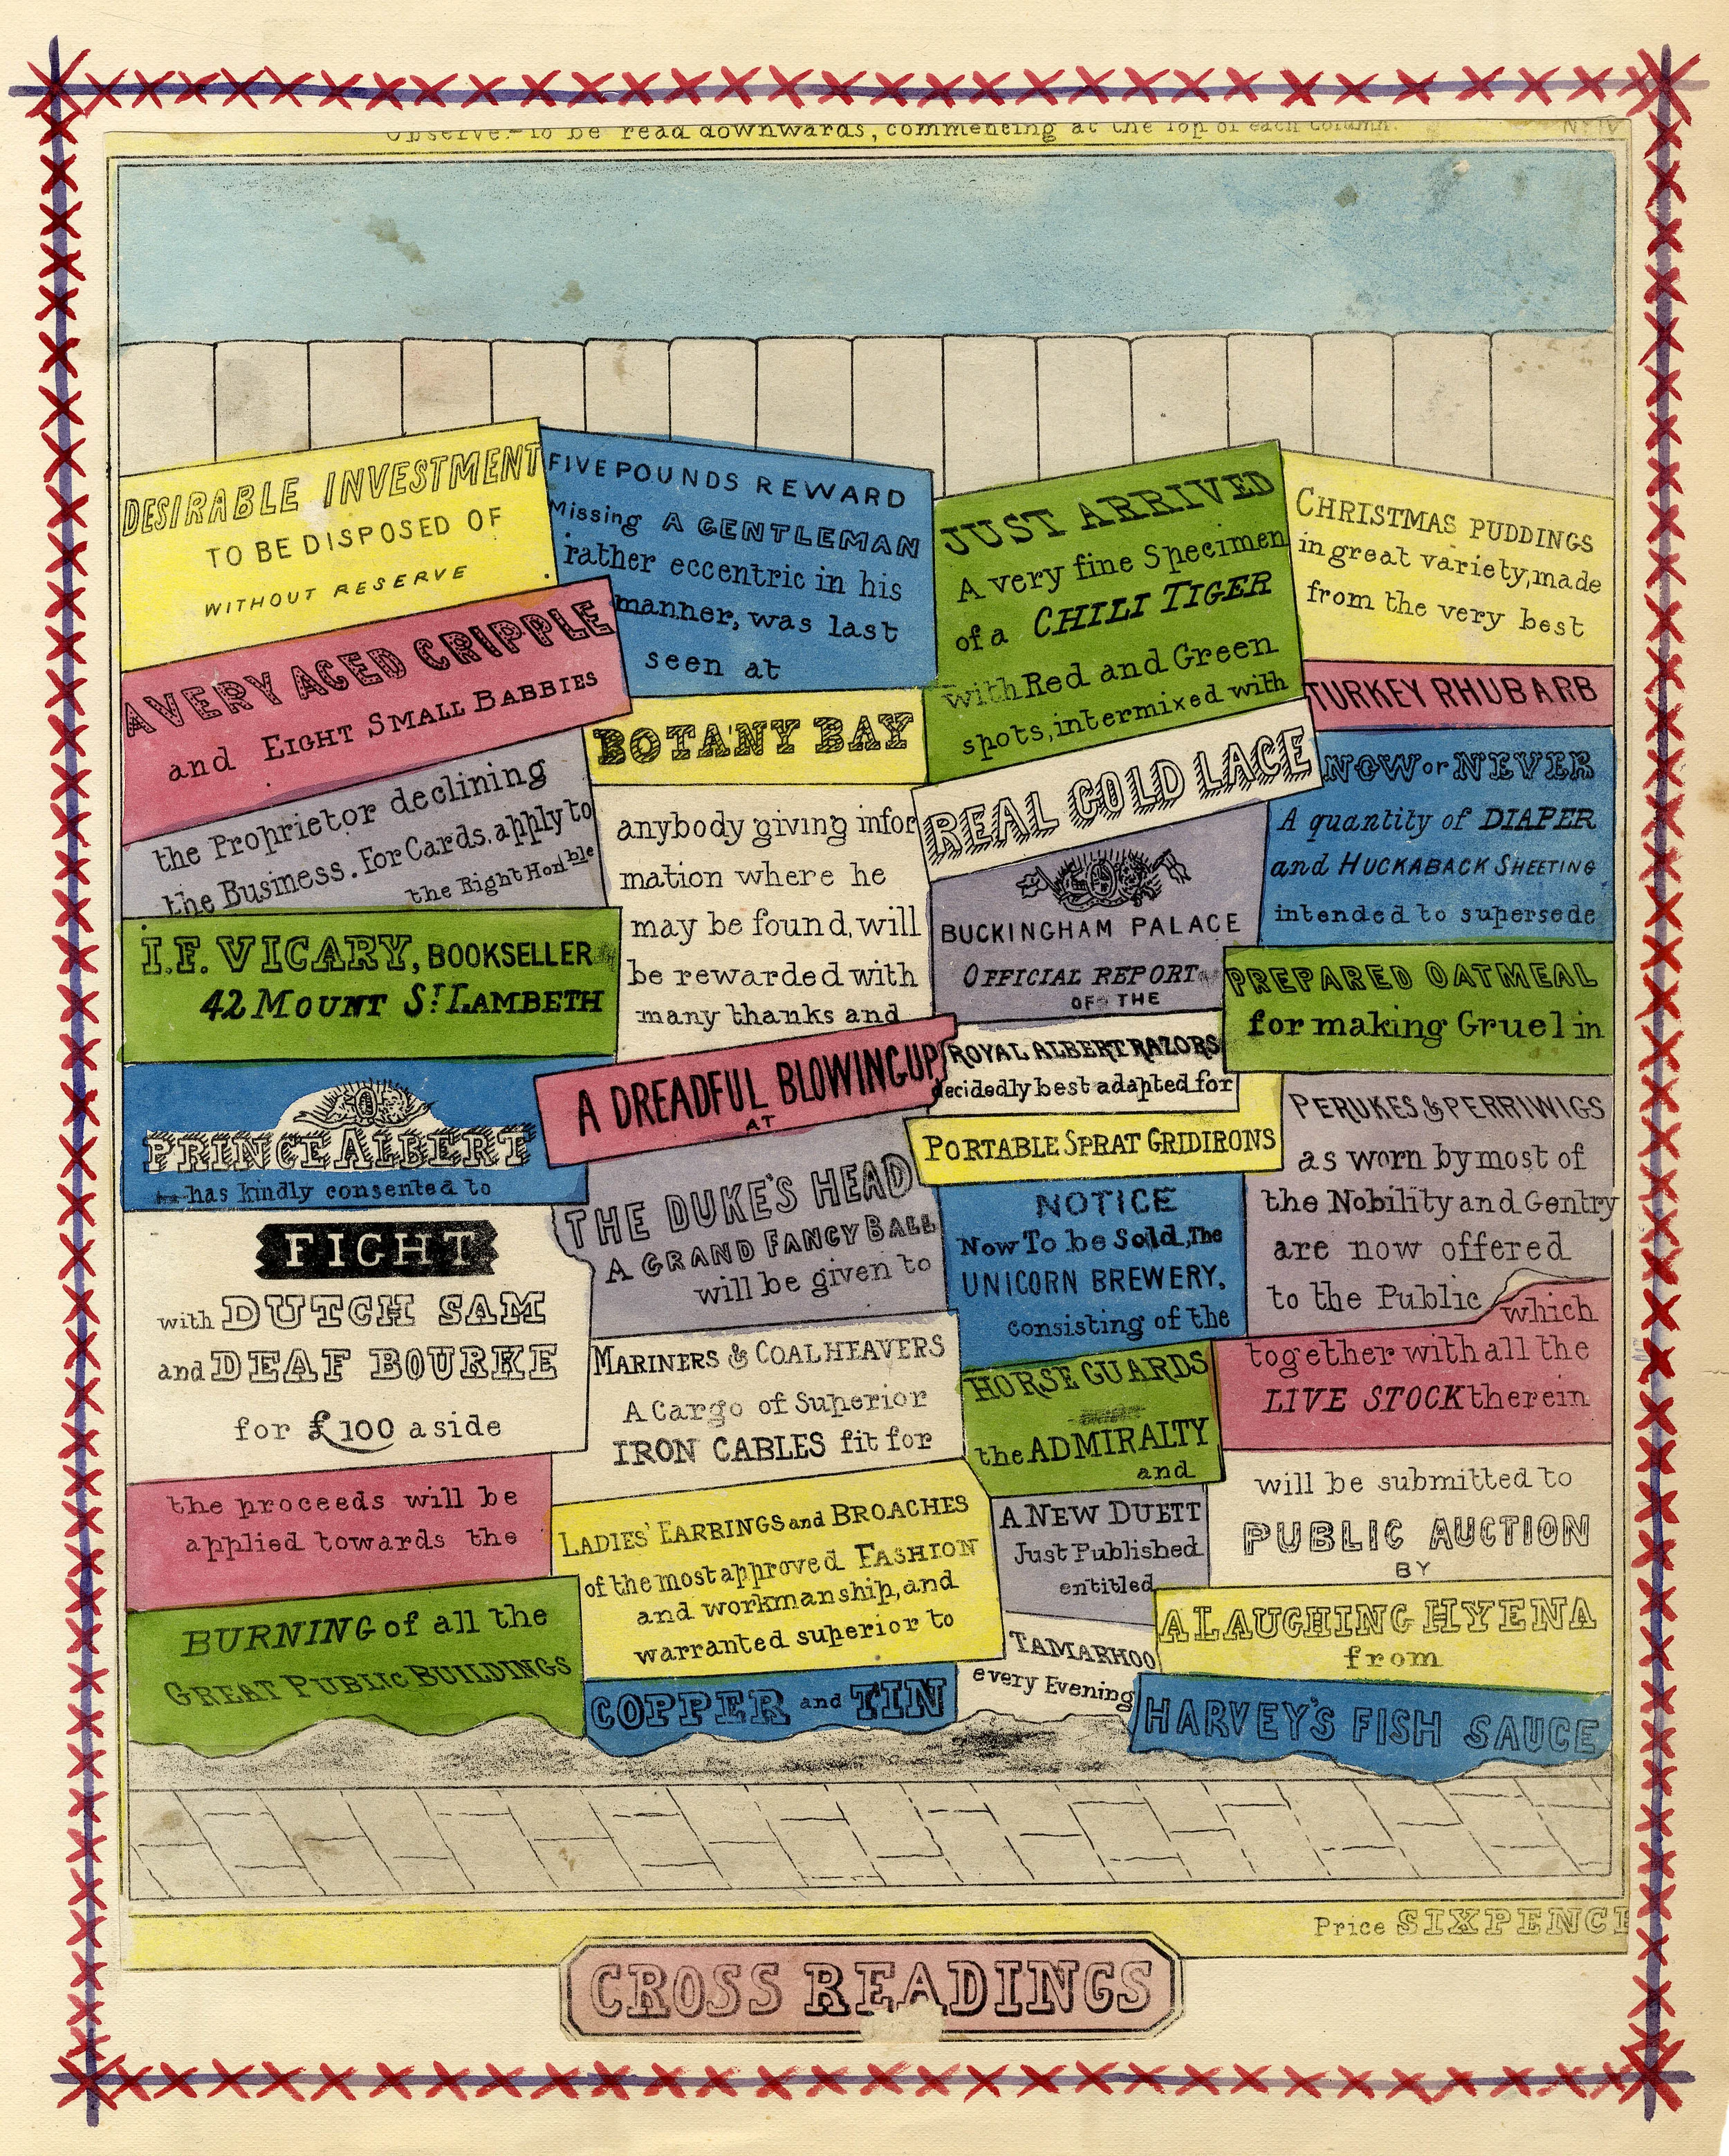 Observe.– To be read downwards, commencing at the Top of each Column.
DESIRABLE INVESTMENT
TO BE DISPOSED OF
WITHOUT RESERVE
A VERY AGED CRIPPLE
and EIGHT SMALL BABBIES
the Proprietor declining
the Business. For Cards. apply to
the Right Honble
I.F. VICARY, BOOKSELLER
42 MOUNT ST LAMBETH
PRINCE ALBERT
has kindly consented to
FIGHT
with DUTCH SAM
and DEAF BOURKE
for £100 a side
the proceeds will be
applied towards the
BURNING of all the
GREAT PUBLIC BUILDINGS
FIVE POUNDS REWARD
Missing A GENTLEMAN
rather eccentric in his
manner, was last
seen at
BOTANY BAY
anybody giving infor
mation where he
may be found, will
be rewarded with
many thanks and
A DREADFUL BLOWING UP
AT
THE DUKE'S HEAD
A GRAND FANCY BALL
will be given to
MARINERS & COALHEAVERS
A Cargo of Superior
IRON CABLES fit for
LADIES' EARRINGS and BROACHES
of the most approved FASHION
and workmanship, and
warranted superior to
COPPER and TIN
JUST ARRIVED
A very fine Specimen
of a CHILI TIGER
with Red and Green
spots, intermixed with
REAL GOLD LACE
BUCKINGHAM PALACE
OFFICIAL REPORT
OF THE
ROYAL ALBERT RAZORS
decidedly best adapted for
PORTABLE SPRAT GRIDIRONS
NOTICE
Now To be Sold, The
UNICORN BREWERY.
consisting of the
HORSE GUARDS
the ADMIRALTY
and
A NEW DUETT
Just Published
entitled
TAMARHOO
every Evening
CHRISTMAS PUDDINGS
in great variety, made
from the very best
TURKEY RHUBARB
NOW or NEVER
A quantity of DIAPER
and HUCKABACK SHEETING
intended to supersede
PREPARED OATMEAL
for making Gruel in
PERUKES & PERRIWIGS
as worn by most of
the Nobility and Gentry
are now offered
to the Public
which
together with all the
LIVE STOCK therein
will be submitted to
PUBLIC AUCTION
BY
A LAUGHING HYENA
from
HARVEY'S FISH SAUCE
Price SIXPENCE
CROSS READINGS